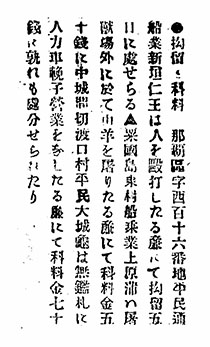 ●拘留と科料　那覇區字西百十六番地平民通
船業新垣仁王は人を毆打したる廉にて拘留五
日に處せらる▲粟國島東村船乗業上原浦は屠
獸塲外に於て山羊を屠りたる廉にて科料金五
十錢に中城間切渡口村平民大城龜は無鑑札に
人力車挽子營業を爲したる廉にて科料金七十
錢に孰れも處分せられたり